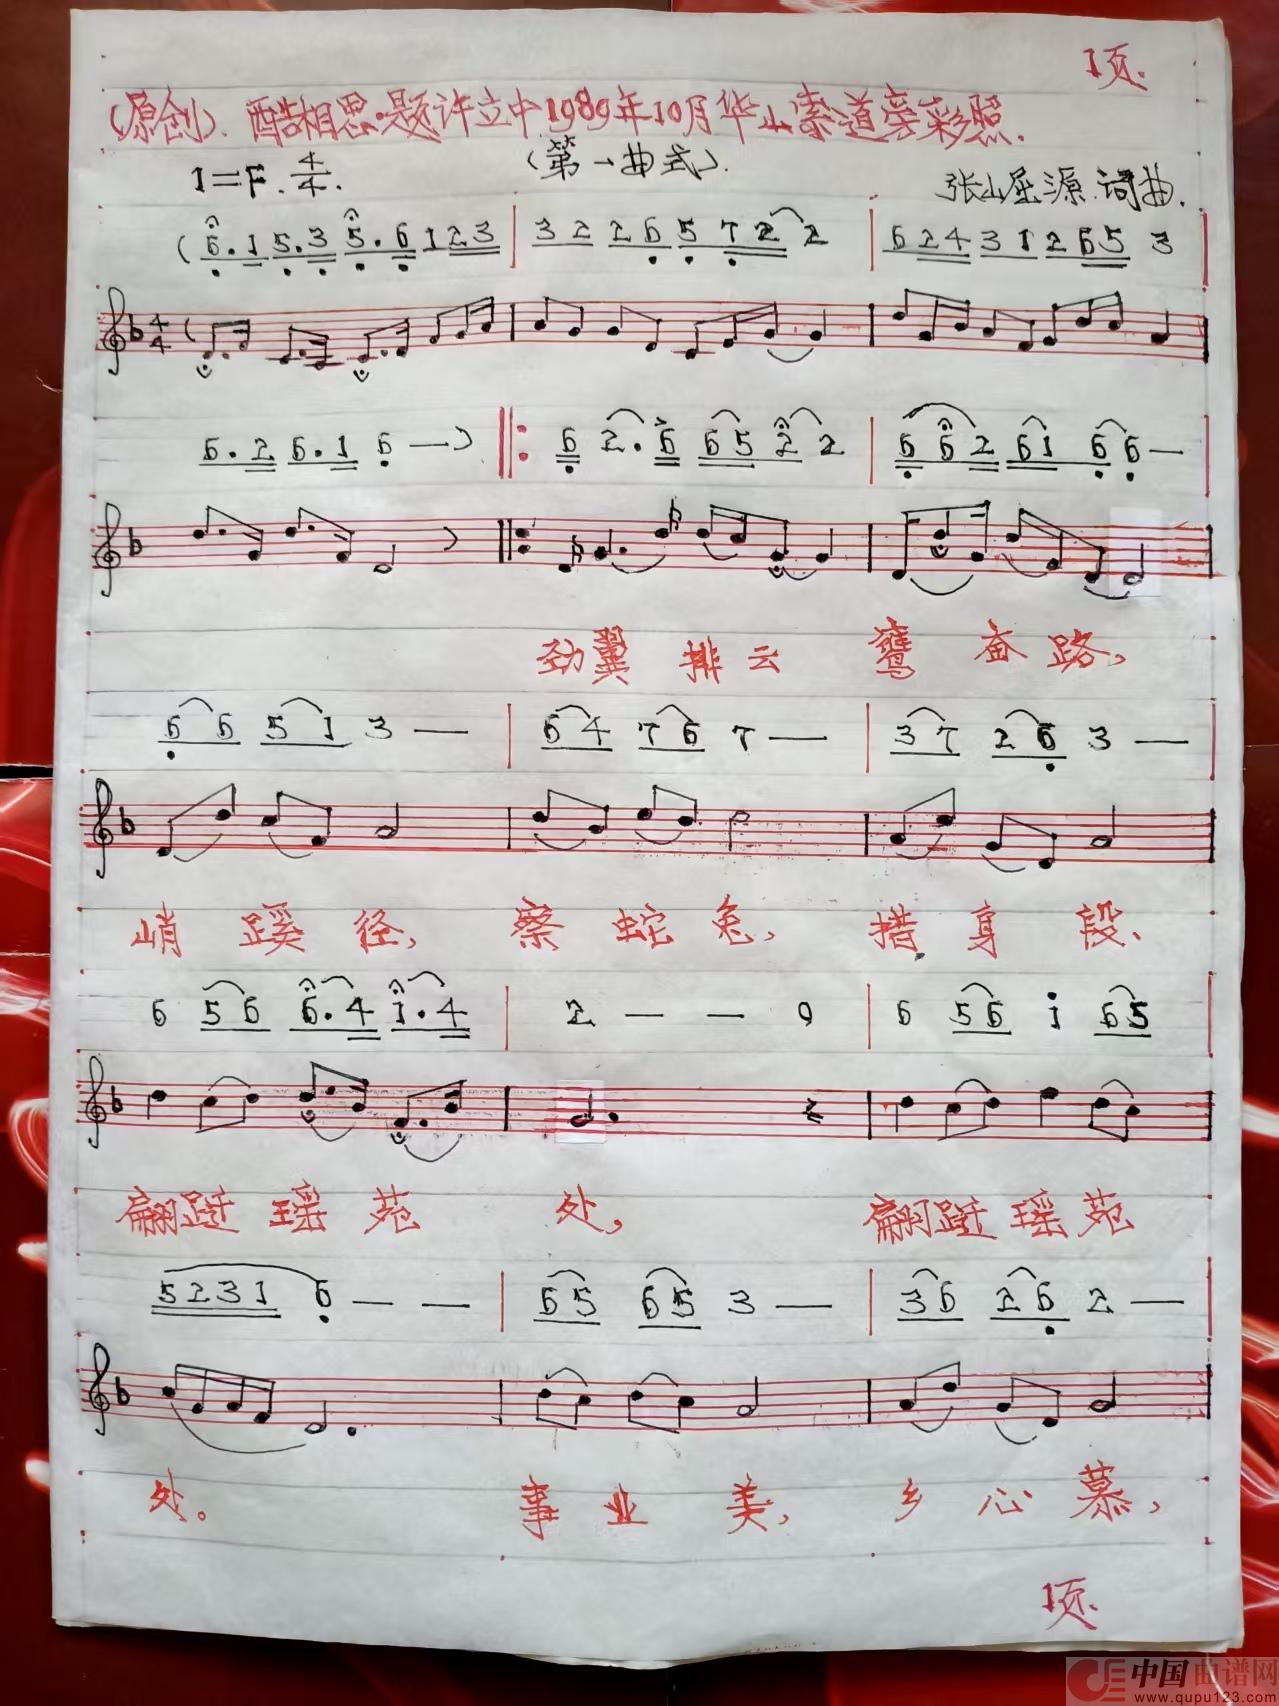 1页.
(原创).酷相思·题许立中1989年10月华山索道旁彩照.
1=F.4/4.
(第一曲式).
张山屈源 词曲.
(6.1 5.3 5.6 123 | 32 26 5 72 2 | 624 31 265 3
6.2 6.1 6 —) ‖: 6 2. 6 65 2 2 | 6 6 2 61 6 6 —
劲翼排云 鹫奋路,
6 6 5 1 3 — | 64 76 7 — | 37 26 3 —
峭蹊径, 察蛇兔, 措身段、
6 56 6.4 1.4 | 2 — — 0 | 6 56 1 65
翩跹瑶苑 处, 翩跹瑶苑
5231 6 — — | 65 65 3 — | 36 26 2 —
处。 事业美, 乡心慕,
1页.
中国曲谱网
www.qupu123.com